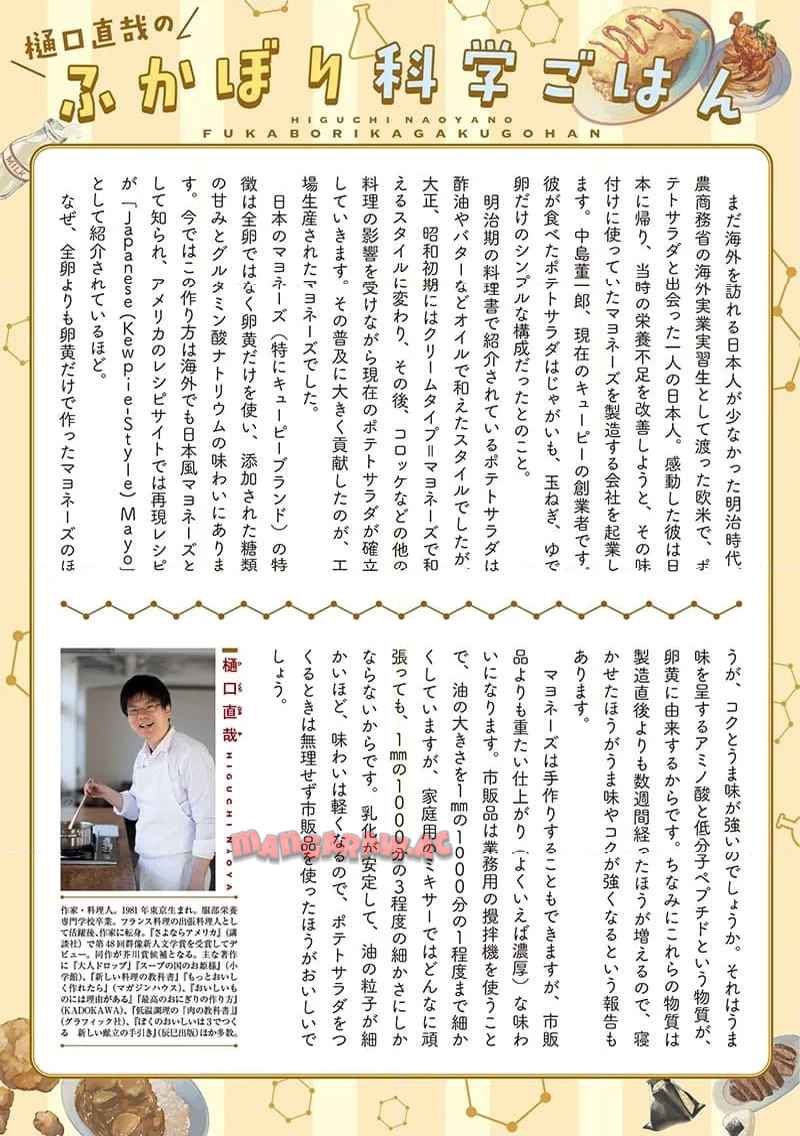 樋口直哉の
ふかぼり科学ごはん
HIGUCHI NAOYANO
FUKABORIKAGAKUGOHAN
MILK
まだ海外を訪れる日本人が少なかった明治時代、
農商務省の海外実業実習生として渡った欧米で、ポ
テトサラダと出会った一人の日本人。感動した彼は日
本に帰り、当時の栄養不足を改善しようと、その味
付けに使っていたマヨネーズを製造する会社を起業し
ます。中島董一郎、現在のキューピーの創業者です。
彼が食べたポテトサラダはじゃがいも、玉ねぎ、ゆで
卵だけのシンプルな構成だったとのこと。
明治期の料理書で紹介されているポテトサラダは
酢油やバターなどオイルで和えたスタイルでしたが、
大正、昭和初期にはクリームタイプ=マヨネーズで和
えるスタイルに変わり、その後、コロッケなどの他の
料理の影響を受けながら現在のポテトサラダが確立
していきます。その普及に大きく貢献したのが、工
場生産されたマヨネーズでした。
日本のマヨネーズ（特にキューピーブランド）の特
徴は全卵ではなく卵黄だけを使い、添加された糖類
の甘みとグルタミン酸ナトリウムの味わいにありま
す。今ではこの作り方は海外でも日本風マヨネーズと
して知られ、アメリカのレシピサイトでは再現レシピ
が「Japanese(Kewpie-Style) Mayo」
として紹介されているほど。
なぜ、全卵よりも卵黄だけで作ったマヨネーズのほ
うが、コクとうま味が強いのでしょうか。それはうま
味を呈するアミノ酸と低分子ペプチドという物質が、
卵黄に由来するからです。ちなみにこれらの物質は
製造直後よりも数週間経ったほうが増えるので、寝
かせたほうがうま味やコクが強くなるという報告も
あります。
マヨネーズは手作りすることもできますが、市販
品よりも重たい仕上がり（よくいえば濃厚）な味わ
いになります。市販品は業務用の攪拌機を使うこと
で、油の大きさを1㎜の1000分の1程度まで細か
くしていますが、家庭用のミキサーではどんなに頑
張っても、1㎜の1000分の3程度の細かさにしか
ならないからです。乳化が安定して、油の粒子が細
かいほど、味わいは軽くなるので、ポテトサラダをつ
くるときは無理せず市販品を使ったほうがおいしいで
しょう。
樋口直哉
HIGUCHI NAOYA
作家・料理人。1981年東京生まれ。服部栄養
専門学校卒業。フランス料理の出張料理人とし
て活躍後、作家に転身。『さよならアメリカ』(講
談社）で第48回群像新人文学賞を受賞してデ
ビュー。同作が芥川賞候補となる。主な著作
に『大人ドロップ』『スープの国のお姫様』（小
学館）、『新しい料理の教科書』『もっとおいし
く作れたら』（マガジンハウス）、『おいしいも
のには理由がある』『最高のおにぎりの作り方』
(KADOKAWA)、『低温調理の「肉の教科書」』
(グラフィック社)、『ぼくのおいしいは3でつく
る 新しい献立の手引き』(辰巳出版)ほか多数。